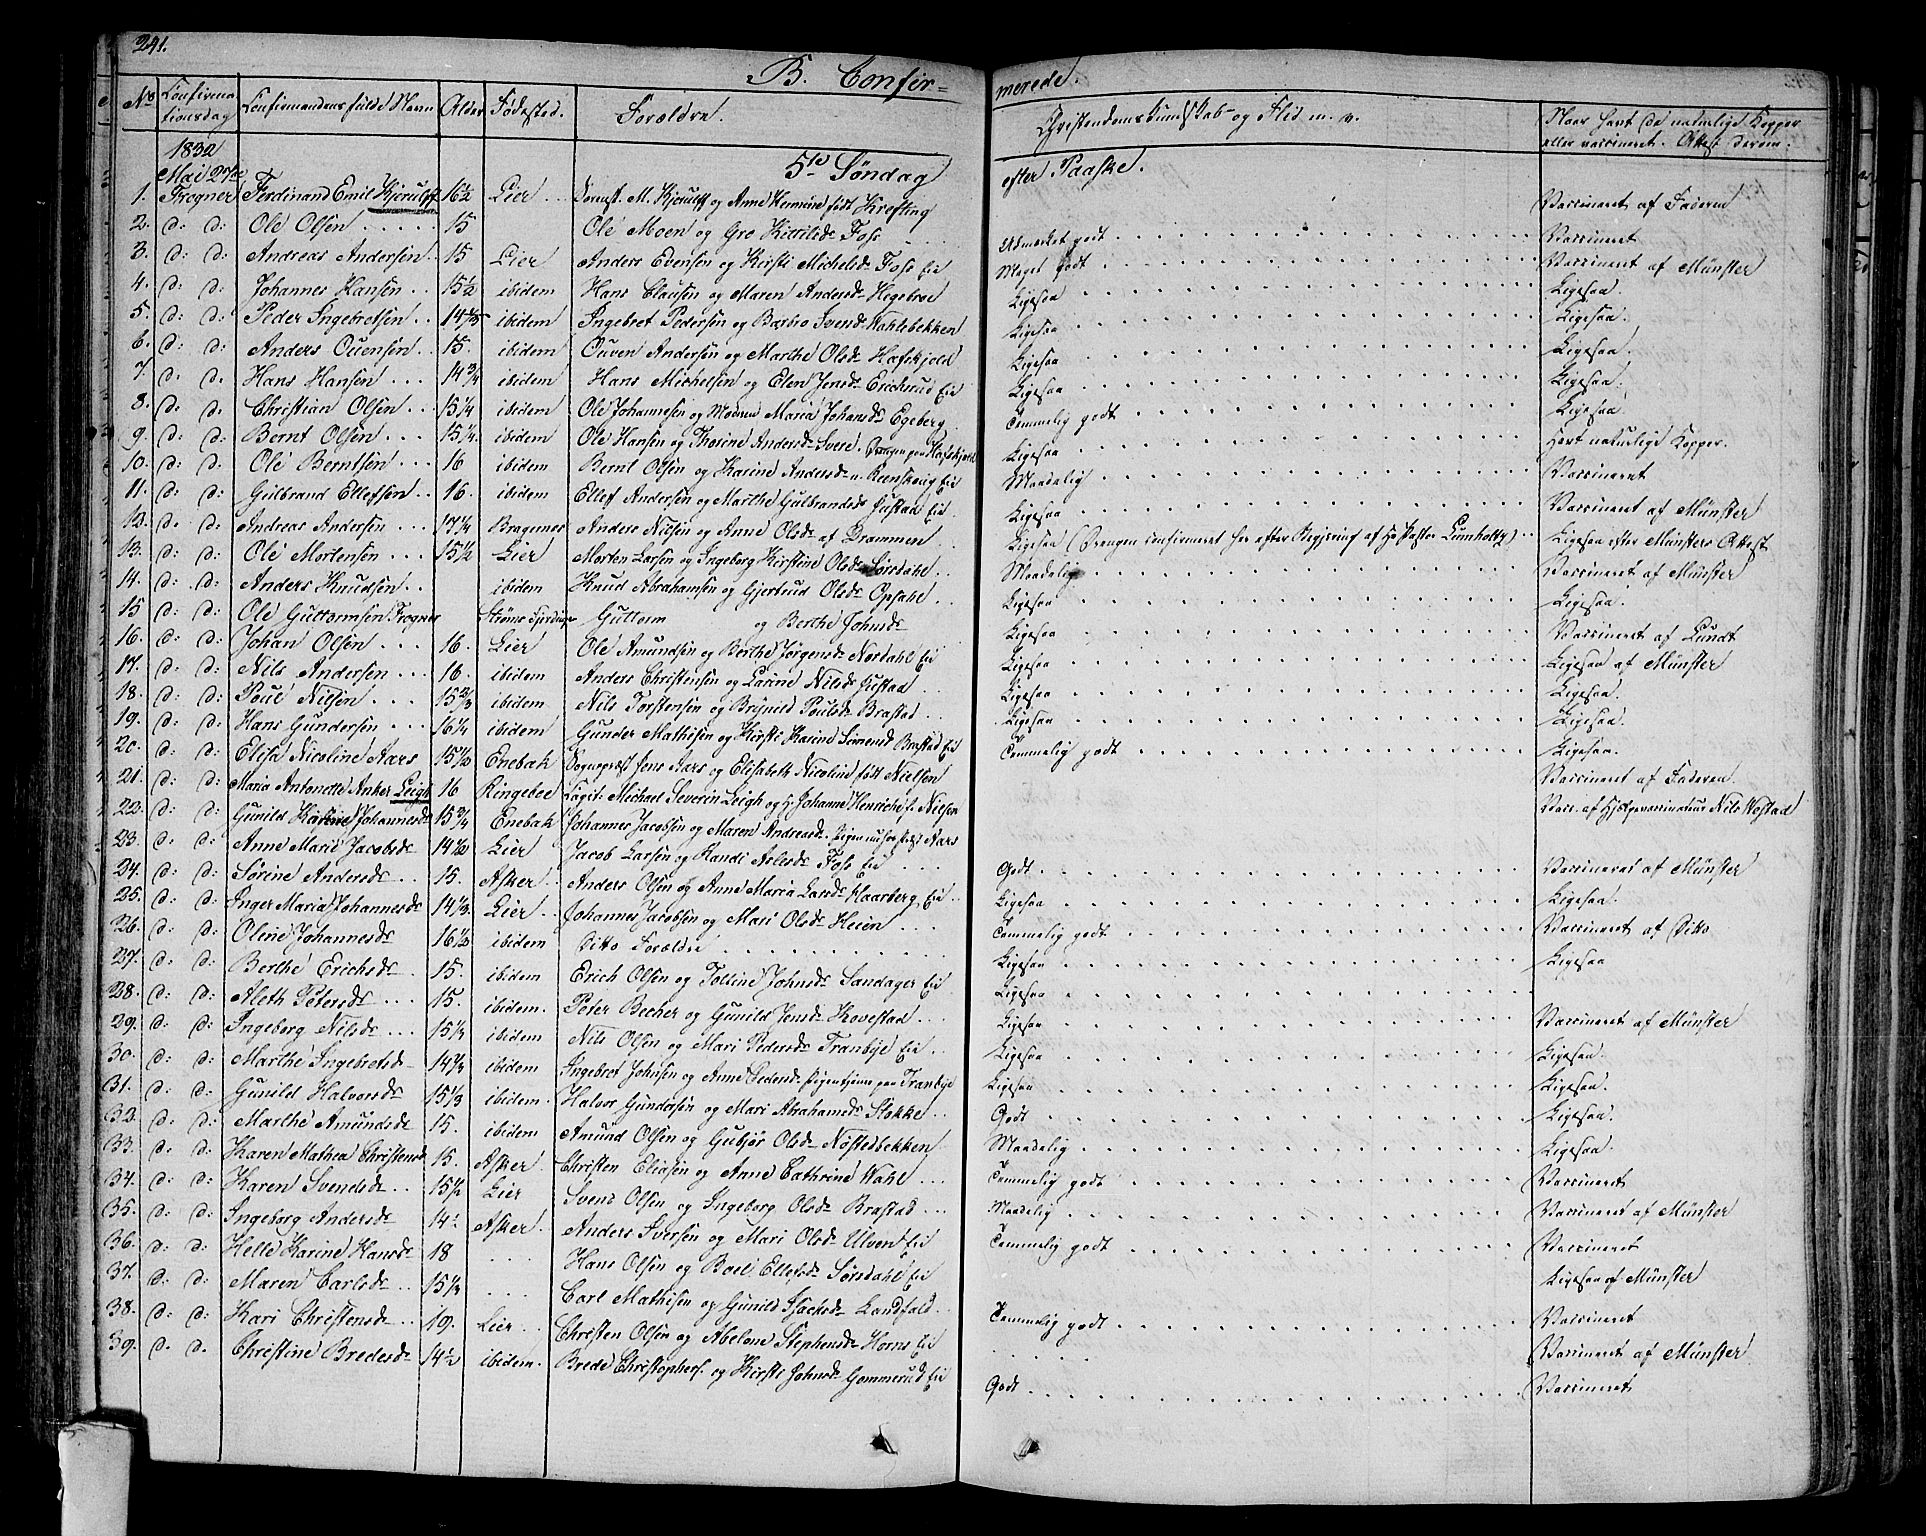 241.
B. Confirmerede.
No Confirmationsdag Confirmandens fulde Navn Alder Fødested. Forældre. Christendomskundskab og Flid m. v. Naar havt de naturlige Kopper eller vaccineret. Attest derom.
1832 Mai 27de 5te Søndag efter Paaske.
1. Frogner Ferdinand Emil Kjerulff 16½ Lier M. Kjerulff og Anne Hermine født Krefting Vaccineret af Faderen
2. d: d: Ole Olsen 15 Ole Moen og Gro Kittilsdr Foss Udmerket godt Vaccineret
3. d: d: Andreas Andersen 15 Lier Anders Evensen og Kirsti Michelsdr Foss Eie Meget godt Vaccineret af Münster
4. d: d: Johannes Hansen 15½ ibidem Hans Clausen og Maren Andersdr Hegebroe Ligesaa Ligesaa
5. d: d: Peder Ingebretsen 14 ibidem Ingebret Pedersen og Barbro Svends Wahlebekken Ligesaa Ligesaa.
6. d: d: Anders Ouensen 15. ibidem Ouven Andersen og Marthe Olsdr Hafskjold Ligesaa Ligesaa.
7. d. d: Hans Hansen 14¾ ibidem Hans Michelsen og Elen Jensdr Ericksrud Eie Ligesaa Ligesaa.
8. d: d: Christian Olsen 15¼ ibidem Ole Johannesen og Moderen Maria Johansdr Egeberg Temmelig godt Ligesaa.
9. d: d: Bernt Olsen 15¼. ibidem Ole Hansen og Thorine Andersdr Svere. Drengen paa Hafskjold Ligesaa Havt naturlige Kopper.
10. d: d: Ole Berntsen 16 ibidem Bernt Olsen og Karine Andersdr Reenskoug Eie Maadelig Vaccineret
11. d: d: Gulbrand Ellefsen 16. ibidem Ellef Andersen og Marthe Gulbrandsdr Justad Eie Ligesaa Vaccineret af Münster
12. d. d: Andreas Andersen 17¼ Bragernes Anders Nilsen og Anne Olsdr af Drammen Ligesaa (Drengen confirmeret her efter af Hr Pastor Lumholtz) Ligesaa efter Münsters Attest
13. d: d: Ole Mortensen 15½ Lier Morten Larsen og Ingeborg Kirstine Olsdr Sørsdahl Maadelig Vaccineret af Münster
14. d: d: Anders Knudsen ibidem Knud Abrahamsen og Gjertrud Olsdr Opsahl Ligesaa Ligesaa.
15 d: d: Ole Guttormsen Frogner Strøms Guttorm og Berthe Johnsdr Ligesaa Vaccineret af Lundt
16. d: d: Johan Olsen 16. Lier Ole Amundsen og Berthe Jørgensdr Nordahl Eie Ligesaa Ligesaa af Münster
17. d: d: Nils Andersen 16. ibidem Anders Christensen og Larine Nilsdr Justad Ligesaa Ligesaa.
18. d: d: Poul Nilsen 15⅔ ibidem Nils Torstensen og Brynild Poulsdr Brastad Ligesaa Ligesaa.
19. d: d: Hans Gundersen 16¼ ibidem Gunder Mathisen og Kirsti Karine Simensdr Brastad Eie Temmelig godt Ligesaa.
20. d: d: Elisa Nicoline Aars 15½ Enebak Sognepræst Jens Aars og Elisabeth Nicoline født Nielsen Vaccineret af Faderen.
21. d: d: Maria Antonette Anker Leigh 16 Ringeboe Capit: Michael Severin Leigh og Johanne Henriche f. Nielsen Vacc. af Hjelpevaccinateur Nils Wostad
22. d: d: Gunild Karine Johannesdr 15¾ Enebak Johannes Jacobsen og Maren Andreasdr. Aars
23. d: d: Anne Marie Jacobsdr 14½ Lier Jacob Larsen og Randi Foss Eie Godt Vaccineret af Münster
24. d: d: Sørine Andersdr 15. Asker Anders Olsen og Anne Maria Larsdr Haarberg Eie Ligesaa Ligesaa.
25. d: d: Inger Maria Johannesdr 14⅓. Lier Johannes Jacobsen og Mari Olsdr Heien Temmelig godt Vaccineret af Ditto
26. d: d: Oline Johannesdr 16½ ibidem Ditto Forældre Ligesaa Ligesaa
27. d: d: Berthe Erichsdr 15. ibidem Erich Olsen og Tolline Johnsdr Sandager Eie Ligesaa
28. d: d: Aleth Petersdr 15. ibidem. Peter Becher og Gunild Jensdr Hovestad Ligesaa Vaccineret af Münster
29. d: d: Ingeborg Nilsdr 15⅓ ibidem Nils Olsen og Mari Pedersdr Tranbye Eie Ligesaa Ligesaa.
30. d: d: Marthe Ingebretsdr 14⅔ ibidem Ingebret Johnsen og Anne Pedersdr Pigen tjener paa Tranbye Ligesaa Ligesaa.
31. d: d: Gunild Halvorsdr 15⅓ ibidem. Halvor Gundersen og Mari Abrahamsdr Stokke Godt Ligesaa.
32. d: d: Marthe Amundsdr 15. ibidem Amund Olsen og Gubjør Olsdr Nøstedbekken Maadelig Ligesaa.
33. d: d: Karen Mathea Christensdr 15. Asker Christen Eliasen og Anne Cathrine Wahl Temmelig godt Vaccineret
34. d: d: Karen Svendsdr 15½ Lier Svend Olsen og Ingeborg Olsdr Brastad Maadelig Vaccineret af Münster
35. d: d: Ingeborg Andersdr 14½ Asker Anders Iversen og Mari Olsdr Ulven Eie Temmelig godt Vaccineret
36. d: d: Helle Karine Hansdr 18 Hans Olsen og Boel Ellefsdr Sørsdahl Eie Ligesaa af Münster
37. d: d: Maren Carlsdr 15⅓ Carl Mathisen og Gunild Isaksdr Landfald Temmelig godt Vaccineret
38. d: d: Kari Christensdr 19. Lier Christen Olsen og Abelone Stephensdr Horns Eie Vaccineret af Münster
39. d. d. Christine Bredesdr 14½ ibidem. Brede Christophers. og Kirsti Johnsdr Gommerud Eie Godt Vaccineret